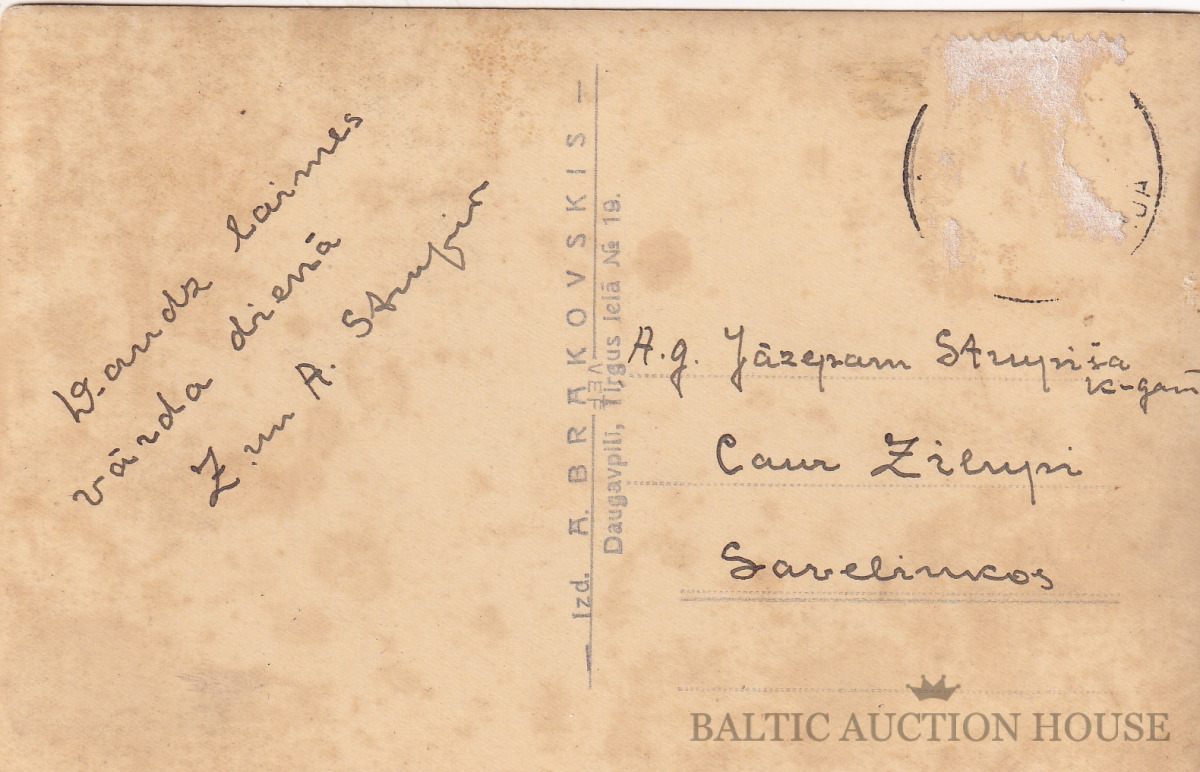 Daudz laimes
vārda dienā
Z. un A. Strupiņ
— Izd. A. BRAKOVSKIS —
Daugavpilī, Tirgus ielā № 19.
A.g. Jāzepam Strupiša
k-gam
Caur Zilupi
Savelinkos
BALTIC AUCTION HOUSE